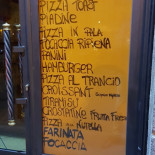 PIZZA TORT
PIADINE
PIZZA IN PALA
FOCACCIA RIPIENA
PANINI
HAMBURGER
PIZZA AL TRANCIO
CROISSANT
TIRAMISU
CROSTATINE FRUTTA FRESCA
PIZZA NUTELLA
FARINATA
FOCACCIA